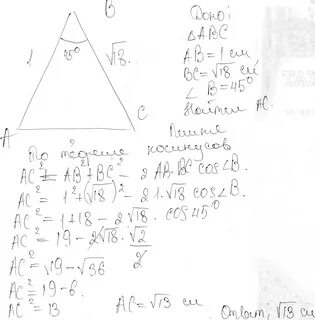 B
1
45°
√18.
A
C
Дано:
△ABC
AB = 1 см,
BC = √18 см,
∠B = 45°
Найти AC.
По теореме косинусов
AC² = AB² + BC² - 2 AB·BC cos∠B.
AC² = 1² + (√18)² - 2·1·√18 cos∠B.
AC² = 1 + 18 - 2√18 · cos 45°
AC² = 19 - 2√18 · √2/2
AC² = 19 - √36
AC² = 19 - 6.
AC² = 13
AC = √13 см
Ответ: √13 см